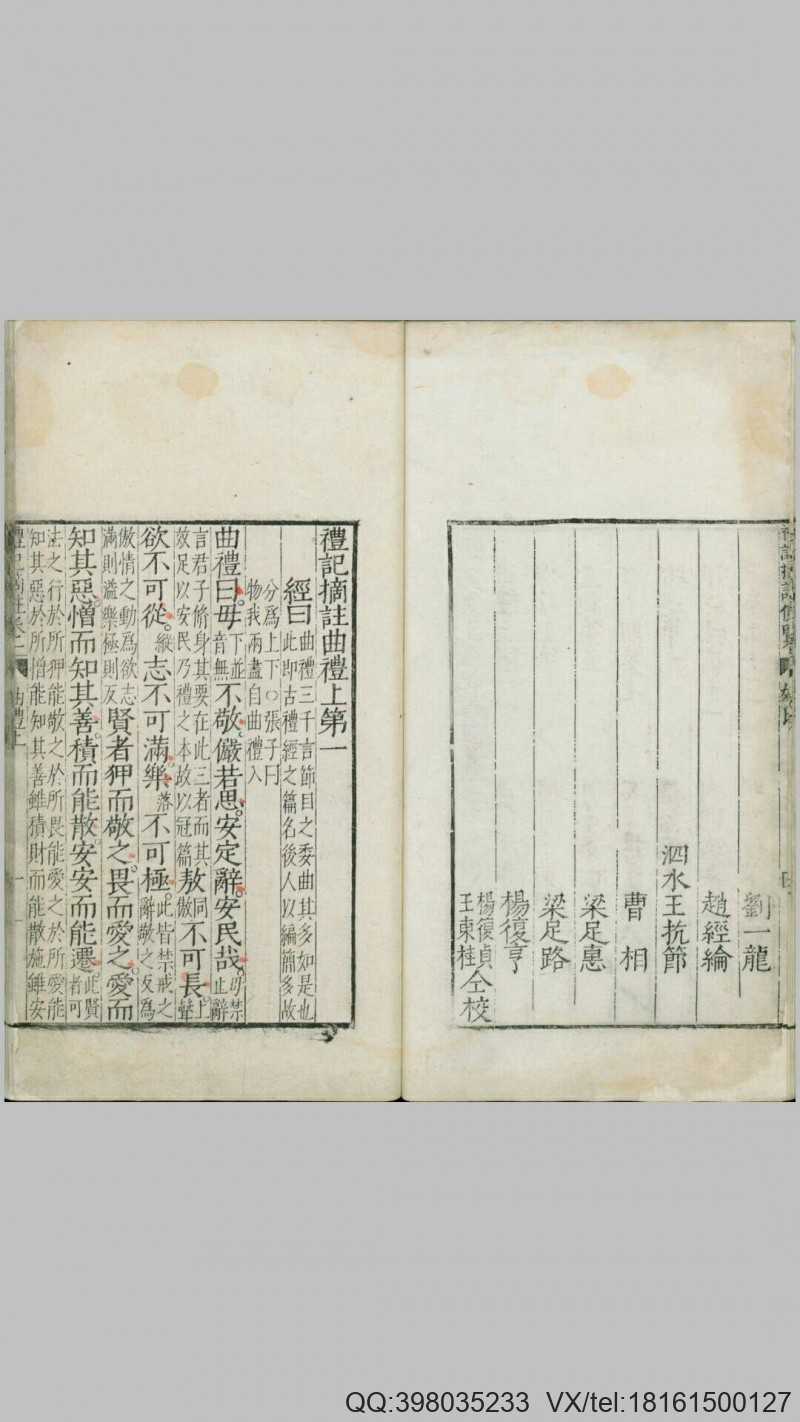 劉一龍
趙經綸
泗水王抗節
曹相
梁足惠
梁足路
楊復亨
楊復貞
王東桂
仝校
禮記摘註曲禮上第一
經曰曲禮三千言節目之委曲其多如是也
此即古禮經之篇名後人以編簡多故
分為上下○張子曰
物我兩盡自曲禮入
曲禮曰毋下並音無不敬儼若思安定辭安民哉毋禁止辭
言君子脩身其要在此三者而其
效足以安民乃禮之本故以冠篇敖同傲不可長上聲
欲不可從縱志不可滿樂落不可極此皆禁戒之
辭敬之反為
傲情之動為欲志
滿則溢樂極則反賢者狎而敬之畏而愛之愛而
知其惡憎而知其善積而能散安安而能遷此賢者可
法之行於所狎能敬之於所畏能愛之於所愛能
知其惡於所憎能知其善雖積財而能散施雖安
曲禮上
QQ:398035233 VX/tel:18161500127